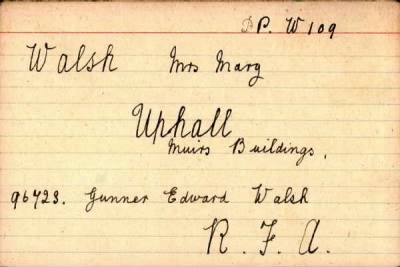 P. W 109
Walsh Mrs Mary
Uphall
Muirs Buildings.
96723. Gunner Edward Walsh
R. F. A.